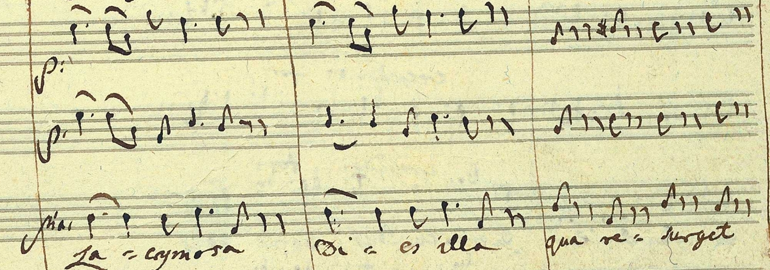 p:
p:
La = crymosa Di = es illa qua re = surget